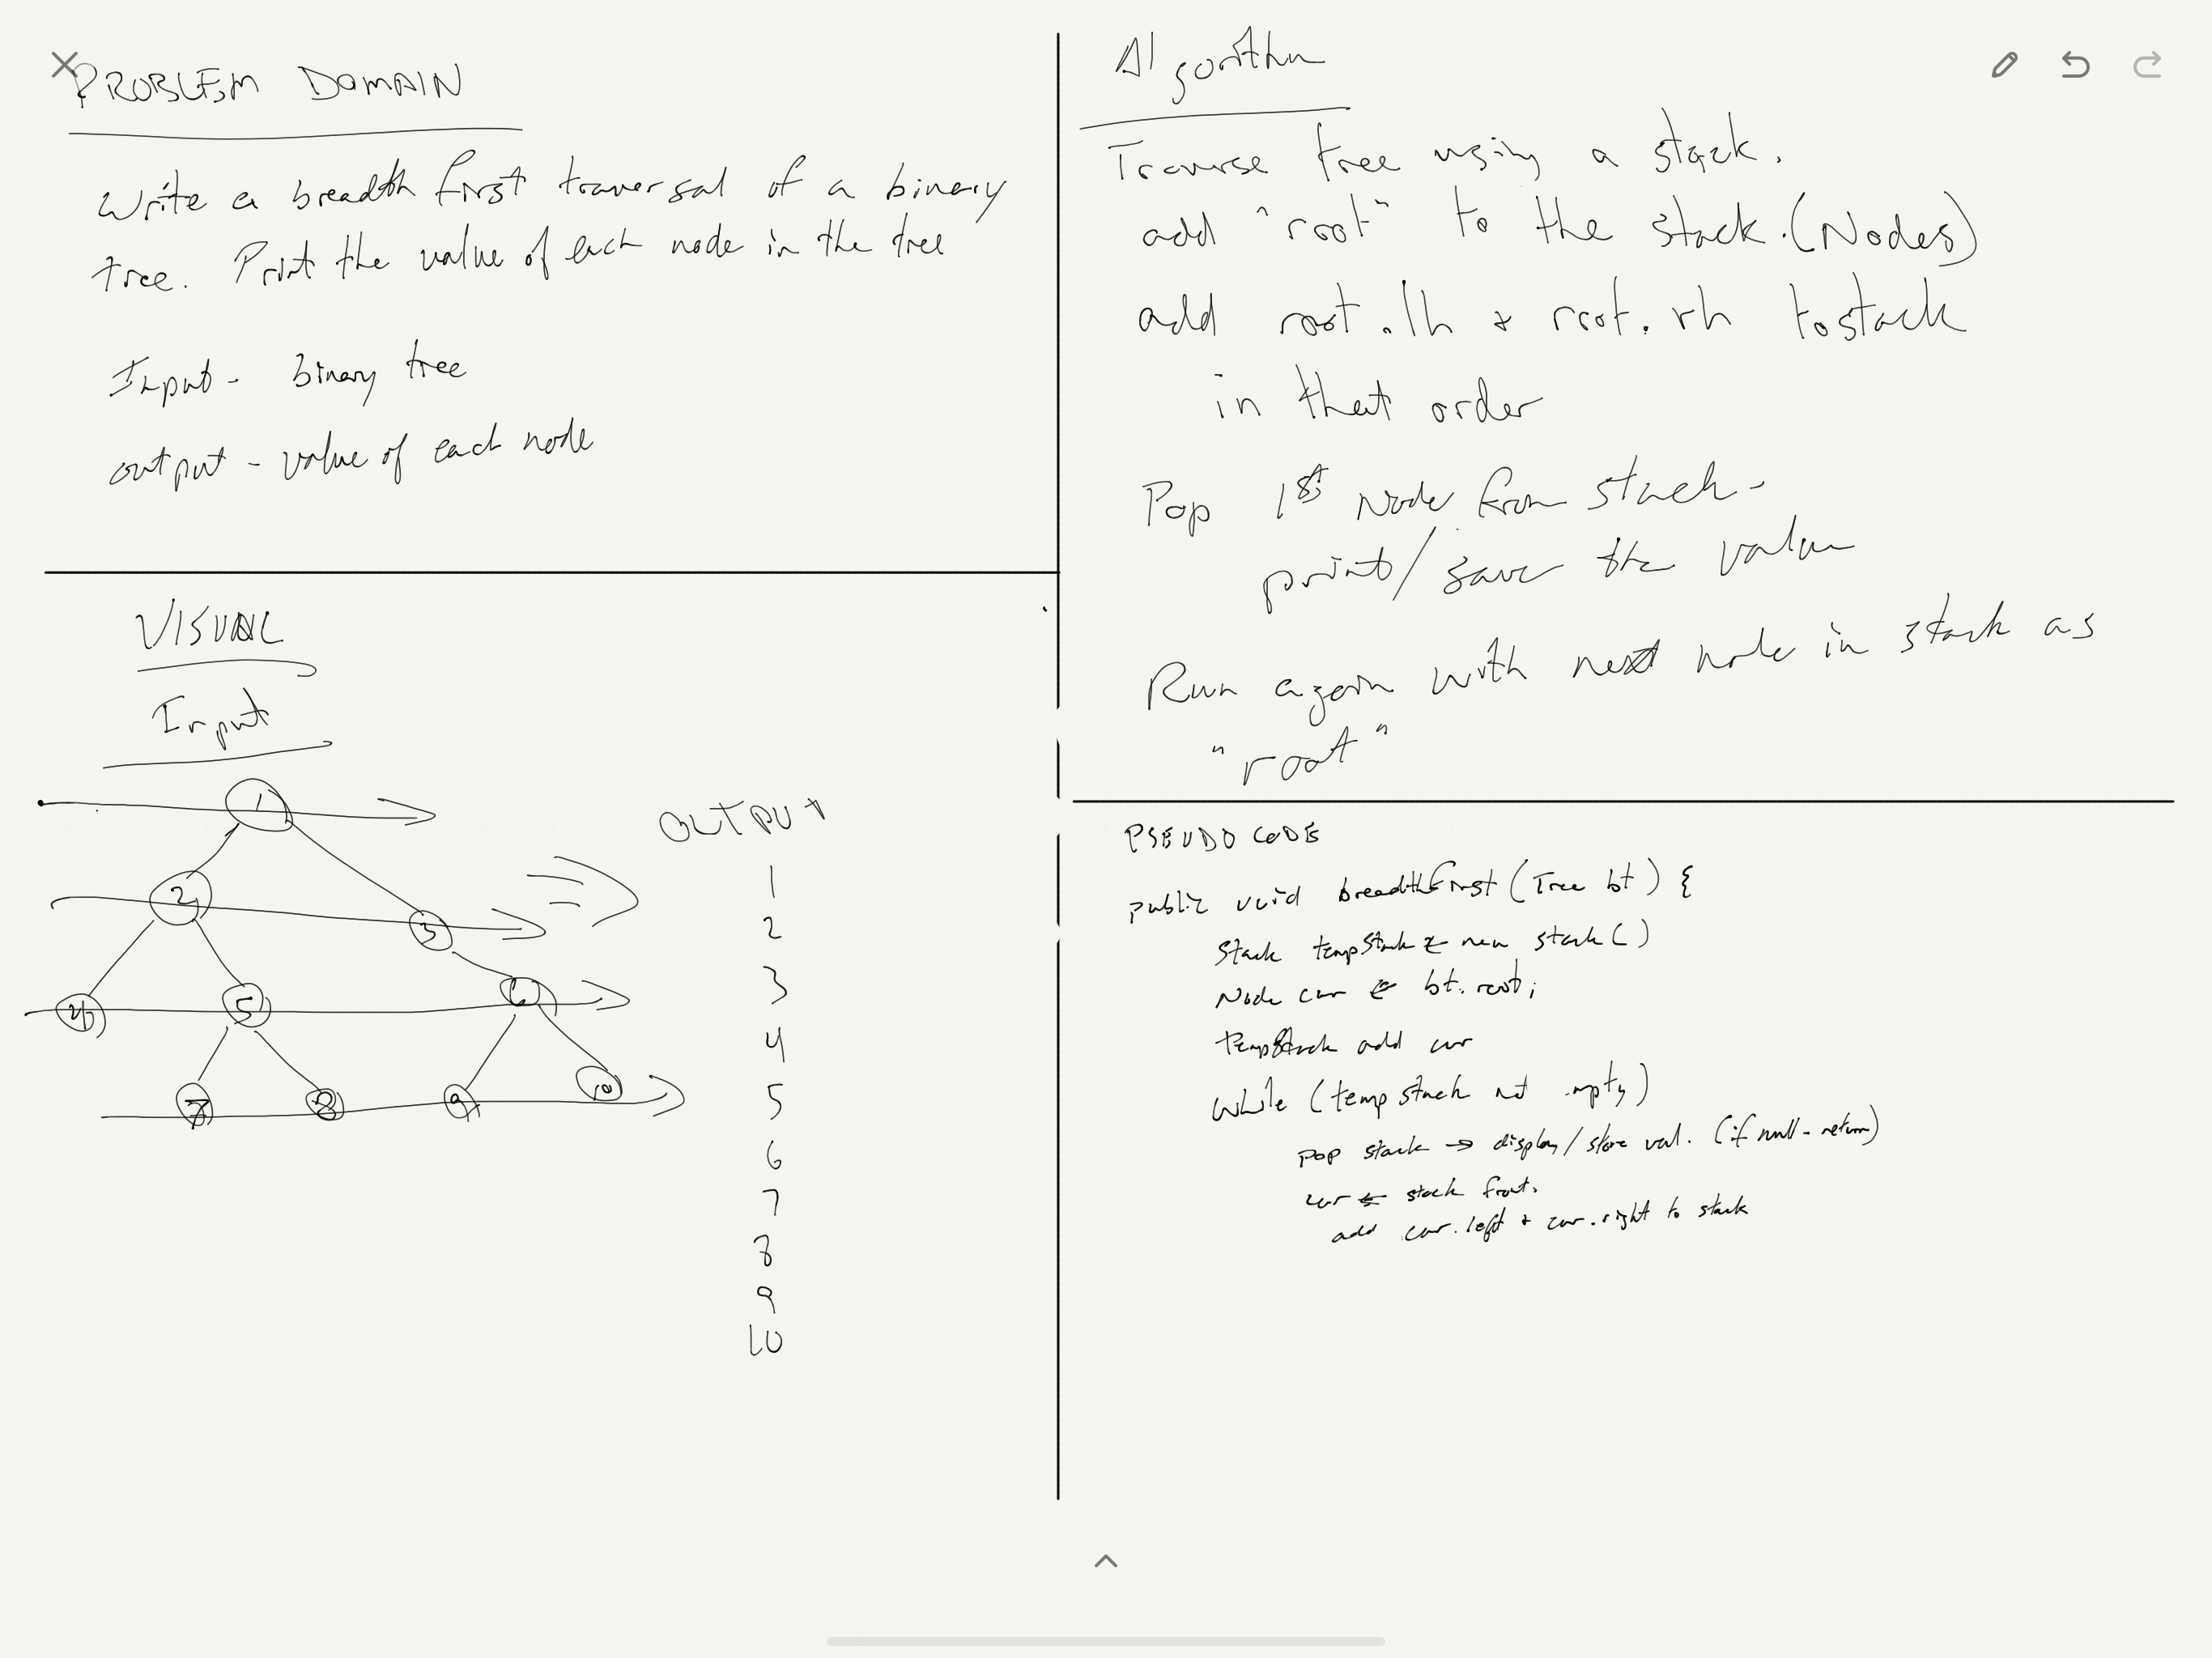 PROBLEM DOMAIN
Write a breadth first traversal of a binary
tree. Print the value of each node in the tree
Input - binary tree
output - value of each node
VISUAL
Input
1
2
3
4
5
6
7
8
9
10
OUTPUT
1
2
3
4
5
6
7
8
9
10
Algorithm
Traverse tree using a stack.
add "root" to the stack. (Nodes)
add root.lh & root.rh to stack
in that order
Pop 1st Node from stack -
print/save the value
Run again with next node in stack as
"root"
PSEUDO CODE
public void breadthFirst (Tree bt) {
Stack tempStack ← new stack ()
Node cur ← bt.root;
tempStack add cur
while (tempstack not empty)
pop stack → display/store val. (if null - return)
cur ← stack front.
add cur.left + cur.right to stack